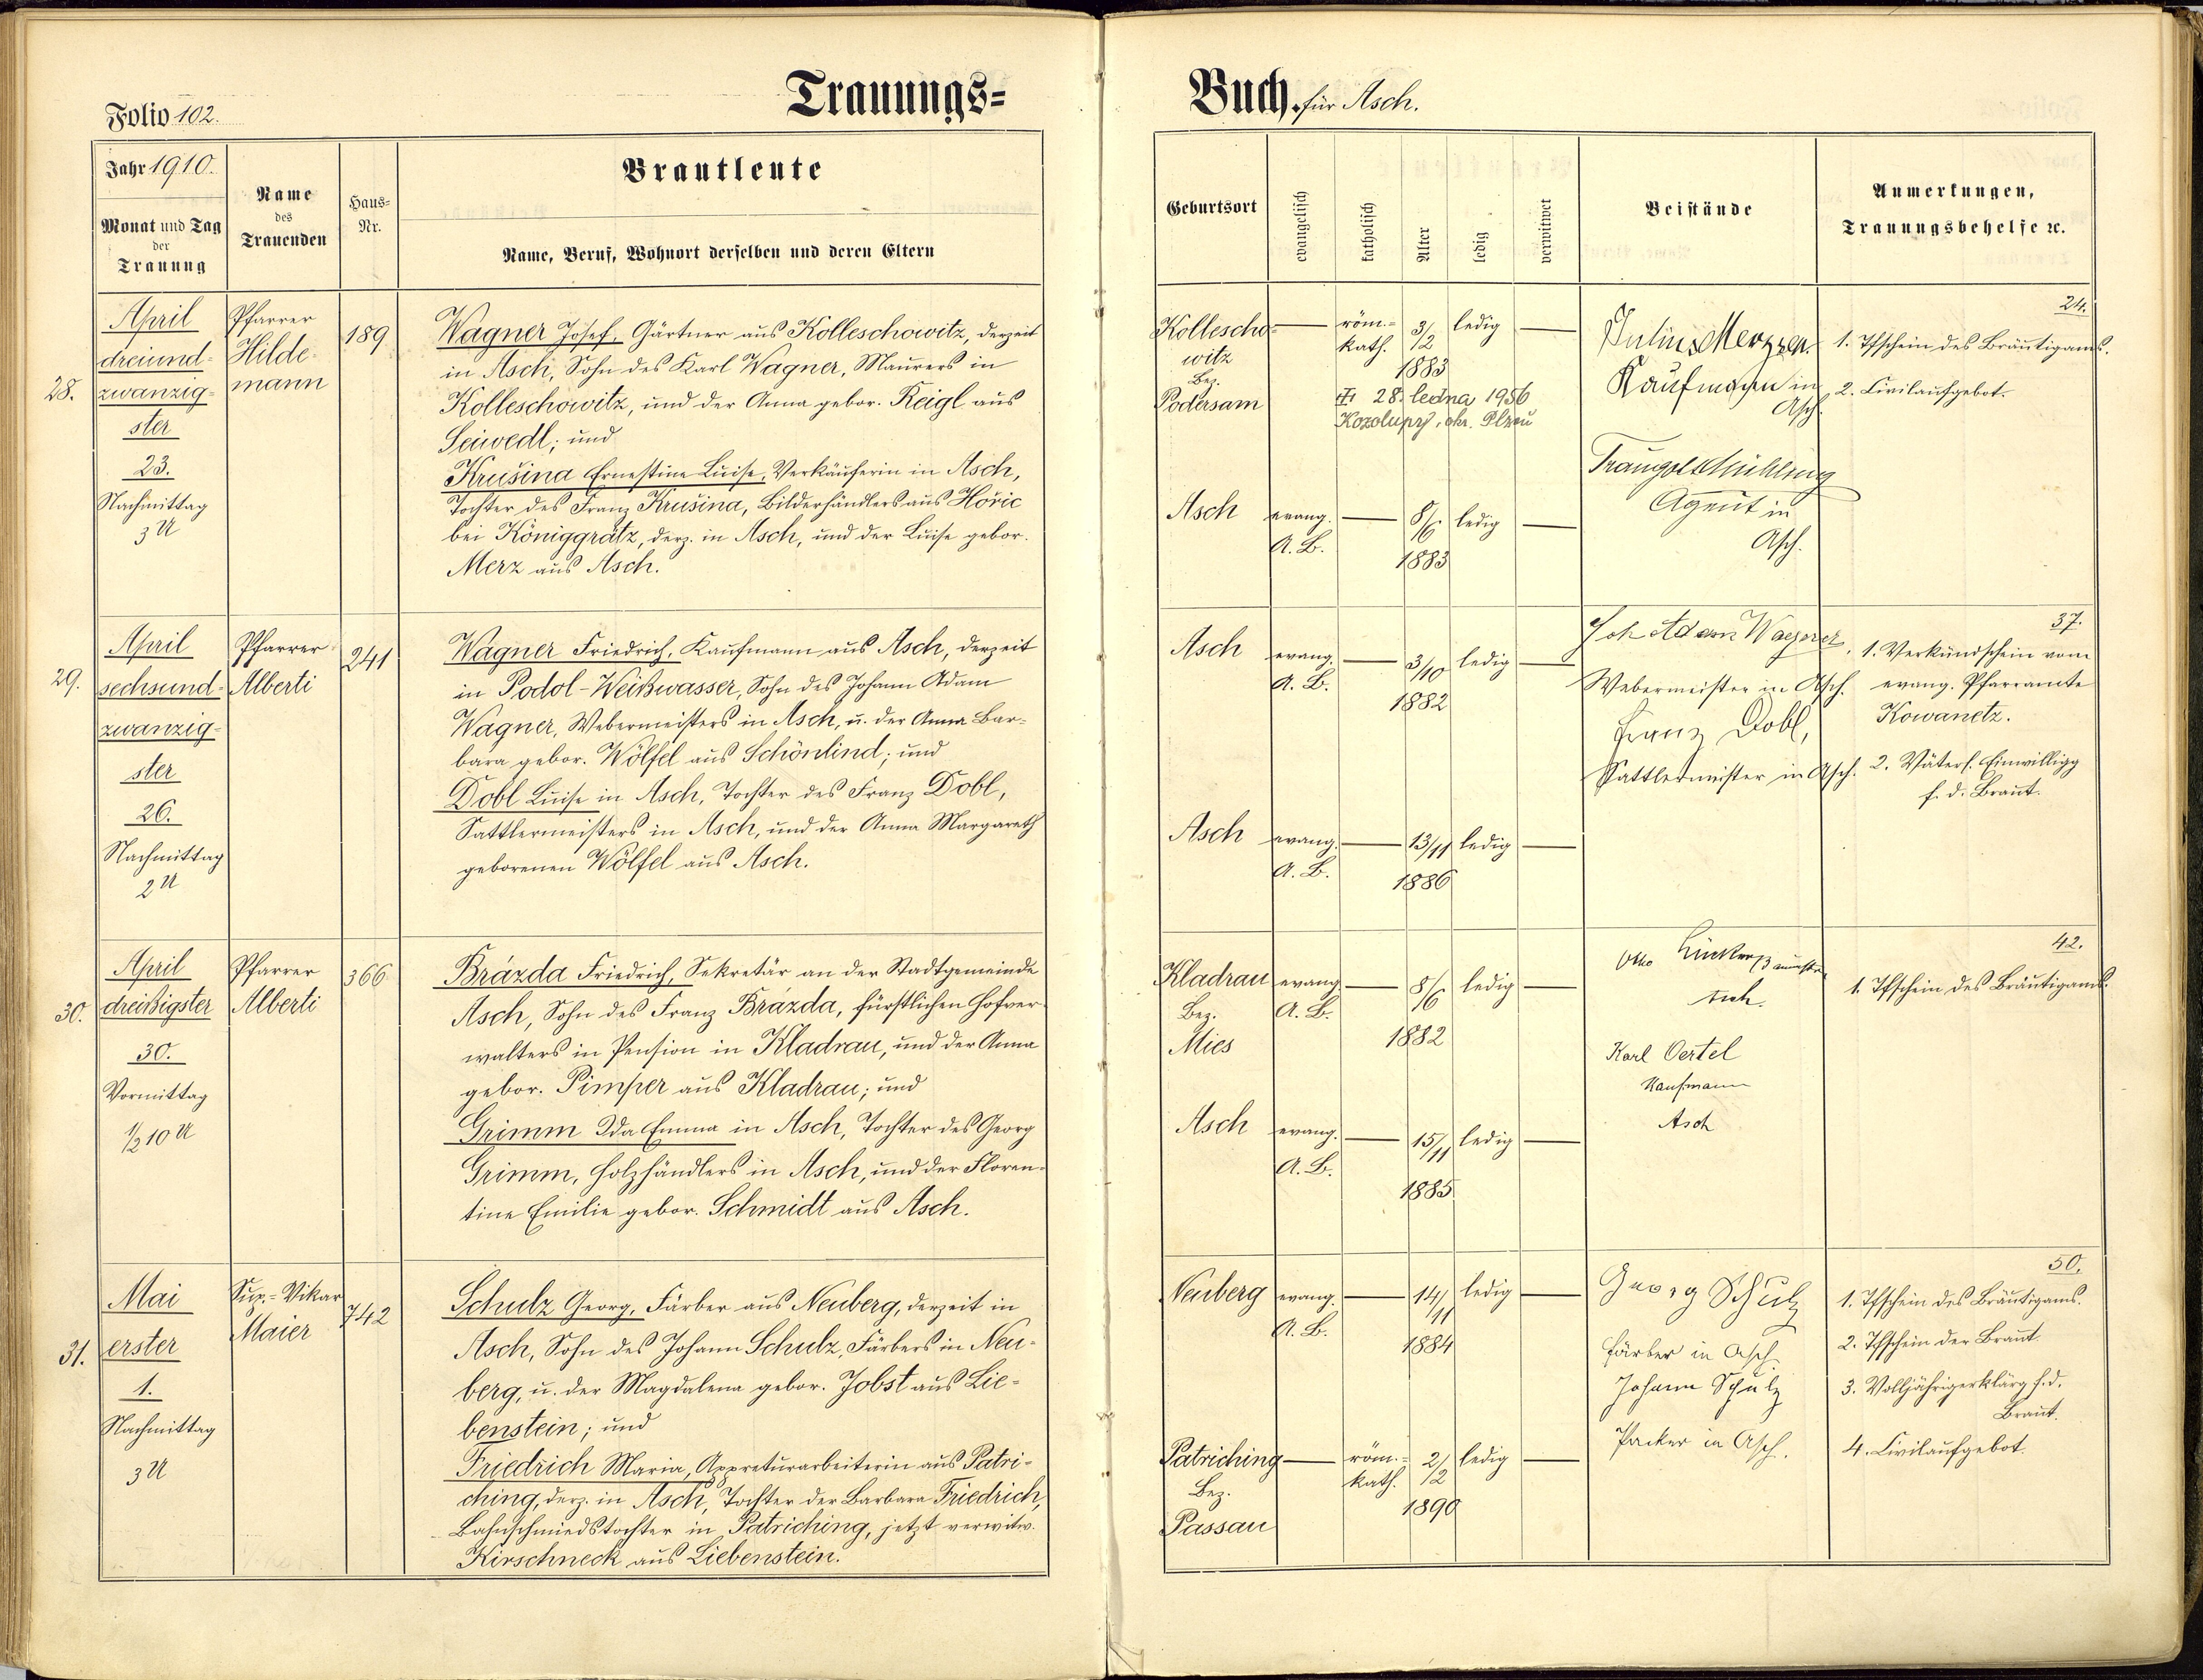 Folio 102.
Trauungs=
Jahr 1910.
Monat und Tag
der
Trauung
Name
des
Trauenden
Haus=
Nr.
Brautleute
Name, Beruf, Wohnort derselben und deren Eltern
28.
April
dreiund-
zwanzig-
ster
23.
Nachmittag
3 U
Pfarrer
Hilde-
mann
189
Wagner Josef, Gärtner aus Kolleschowitz, derzeit
in Asch, Sohn des Karl Wagner, Maurers in
Kolleschowitz, und der Anna gebor. Keigl aus
Seiwedl; und
Krušina Ernestine Luise, Verkäuferin in Asch,
Tochter des Franz Krušina, Bilderhändlers aus Hořic
bei Königgrätz, derz. in Asch, und der Luise gebor.
Merz aus Asch.
29.
April
sechsund-
zwanzig-
ster
26.
Nachmittag
2 U
Pfarrer
Alberti
241
Wagner Friedrich, Kaufmann aus Asch, derzeit
in Podol-Weißwasser, Sohn des Johann Adam
Wagner, Webermeisters in Asch, u. der Anna Bar-
bara gebor. Wölfel aus Schönlind; und
Dobl Luise in Asch, Tochter des Franz Dobl,
Sattlermeisters in Asch, und der Anna Margareth
geborenen Wölfel aus Asch.
30.
April
dreißigster
30.
Vormittag
1/2 10 U
Pfarrer
Alberti
366
Brázda Friedrich, Sekretär an der Stadtgemeinde
Asch, Sohn des Franz Brázda, fürstlichen Hofver-
walters in Pension in Kladrau, und der Anna
gebor. Pimper aus Kladrau; und
Grimm Ida Emma in Asch, Tochter des Georg
Grimm, Holzhändlers in Asch, und der Floren-
tine Emilie gebor. Schmidt aus Asch.
31.
Mai
erster
1.
Nachmittag
3 U
Sup.-Vikar
Maier
742
Schulz Georg, Färber aus Neuberg, derzeit in
Asch, Sohn des Johann Schulz, Färbers in Neu-
berg, u. der Magdalena gebor. Jobst aus Lie-
benstein; und
Friedrich Maria, Appreturarbeiterin aus Patri-
ching, derz. in Asch, Tochter der Barbara Friedrich,
Bahnschmiedstochter in Patriching, jetzt verwitw.
Kirschneck aus Liebenstein.
Buch für Asch.
Geburtsort
evangelisch
katholisch
Alter
ledig
verwitwet
Beistände
Anmerkungen,
Trauungsbehelfe ꝛc.
Kollescho-
witz
Bez.
Podersam
röm.-
kath.
3/2
1883
ledig
28. ledna 1956
Kozolupy, okr. Plzeň
Asch
evang.
A. B.
8/6
1883
ledig
Kaufmann in
Asch.
Agent in
Asch.
24.
1. Tfschein des Bräutigams.
2. Civilaufgebot.
Asch
evang.
A. B.
3/10
1882
ledig
Asch
evang.
A. B.
13/11
1886
ledig
Joh Adam Wagner,
Webermeister in Asch.
Franz Dobl,
Sattlermeister in Asch.
37.
1. Verkündschein vom
evang. Pfarramte
Kowanetz.
2. Väterl. Einwilligg
f. d. Braut.
Kladrau
Bez.
Mies
evang.
A. B.
8/6
1882
ledig
Asch
evang.
A. B.
15/11
1885
ledig
Otto
Asch.
Karl Oertel
Kaufmann
Asch
42.
1. Tfschein des Bräutigams.
Neuberg
evang.
A. B.
14/11
1884
ledig
Patriching
Bez.
Passau
röm.-
kath.
2/2
1890
ledig
Georg Schulz
Färber in Asch.
Johann Schulz
Packer in Asch.
50.
1. Tfschein des Bräutigams.
2. Tfschein der Braut
3. Volljährigerklärg f. d.
Braut.
4. Civilaufgebot.